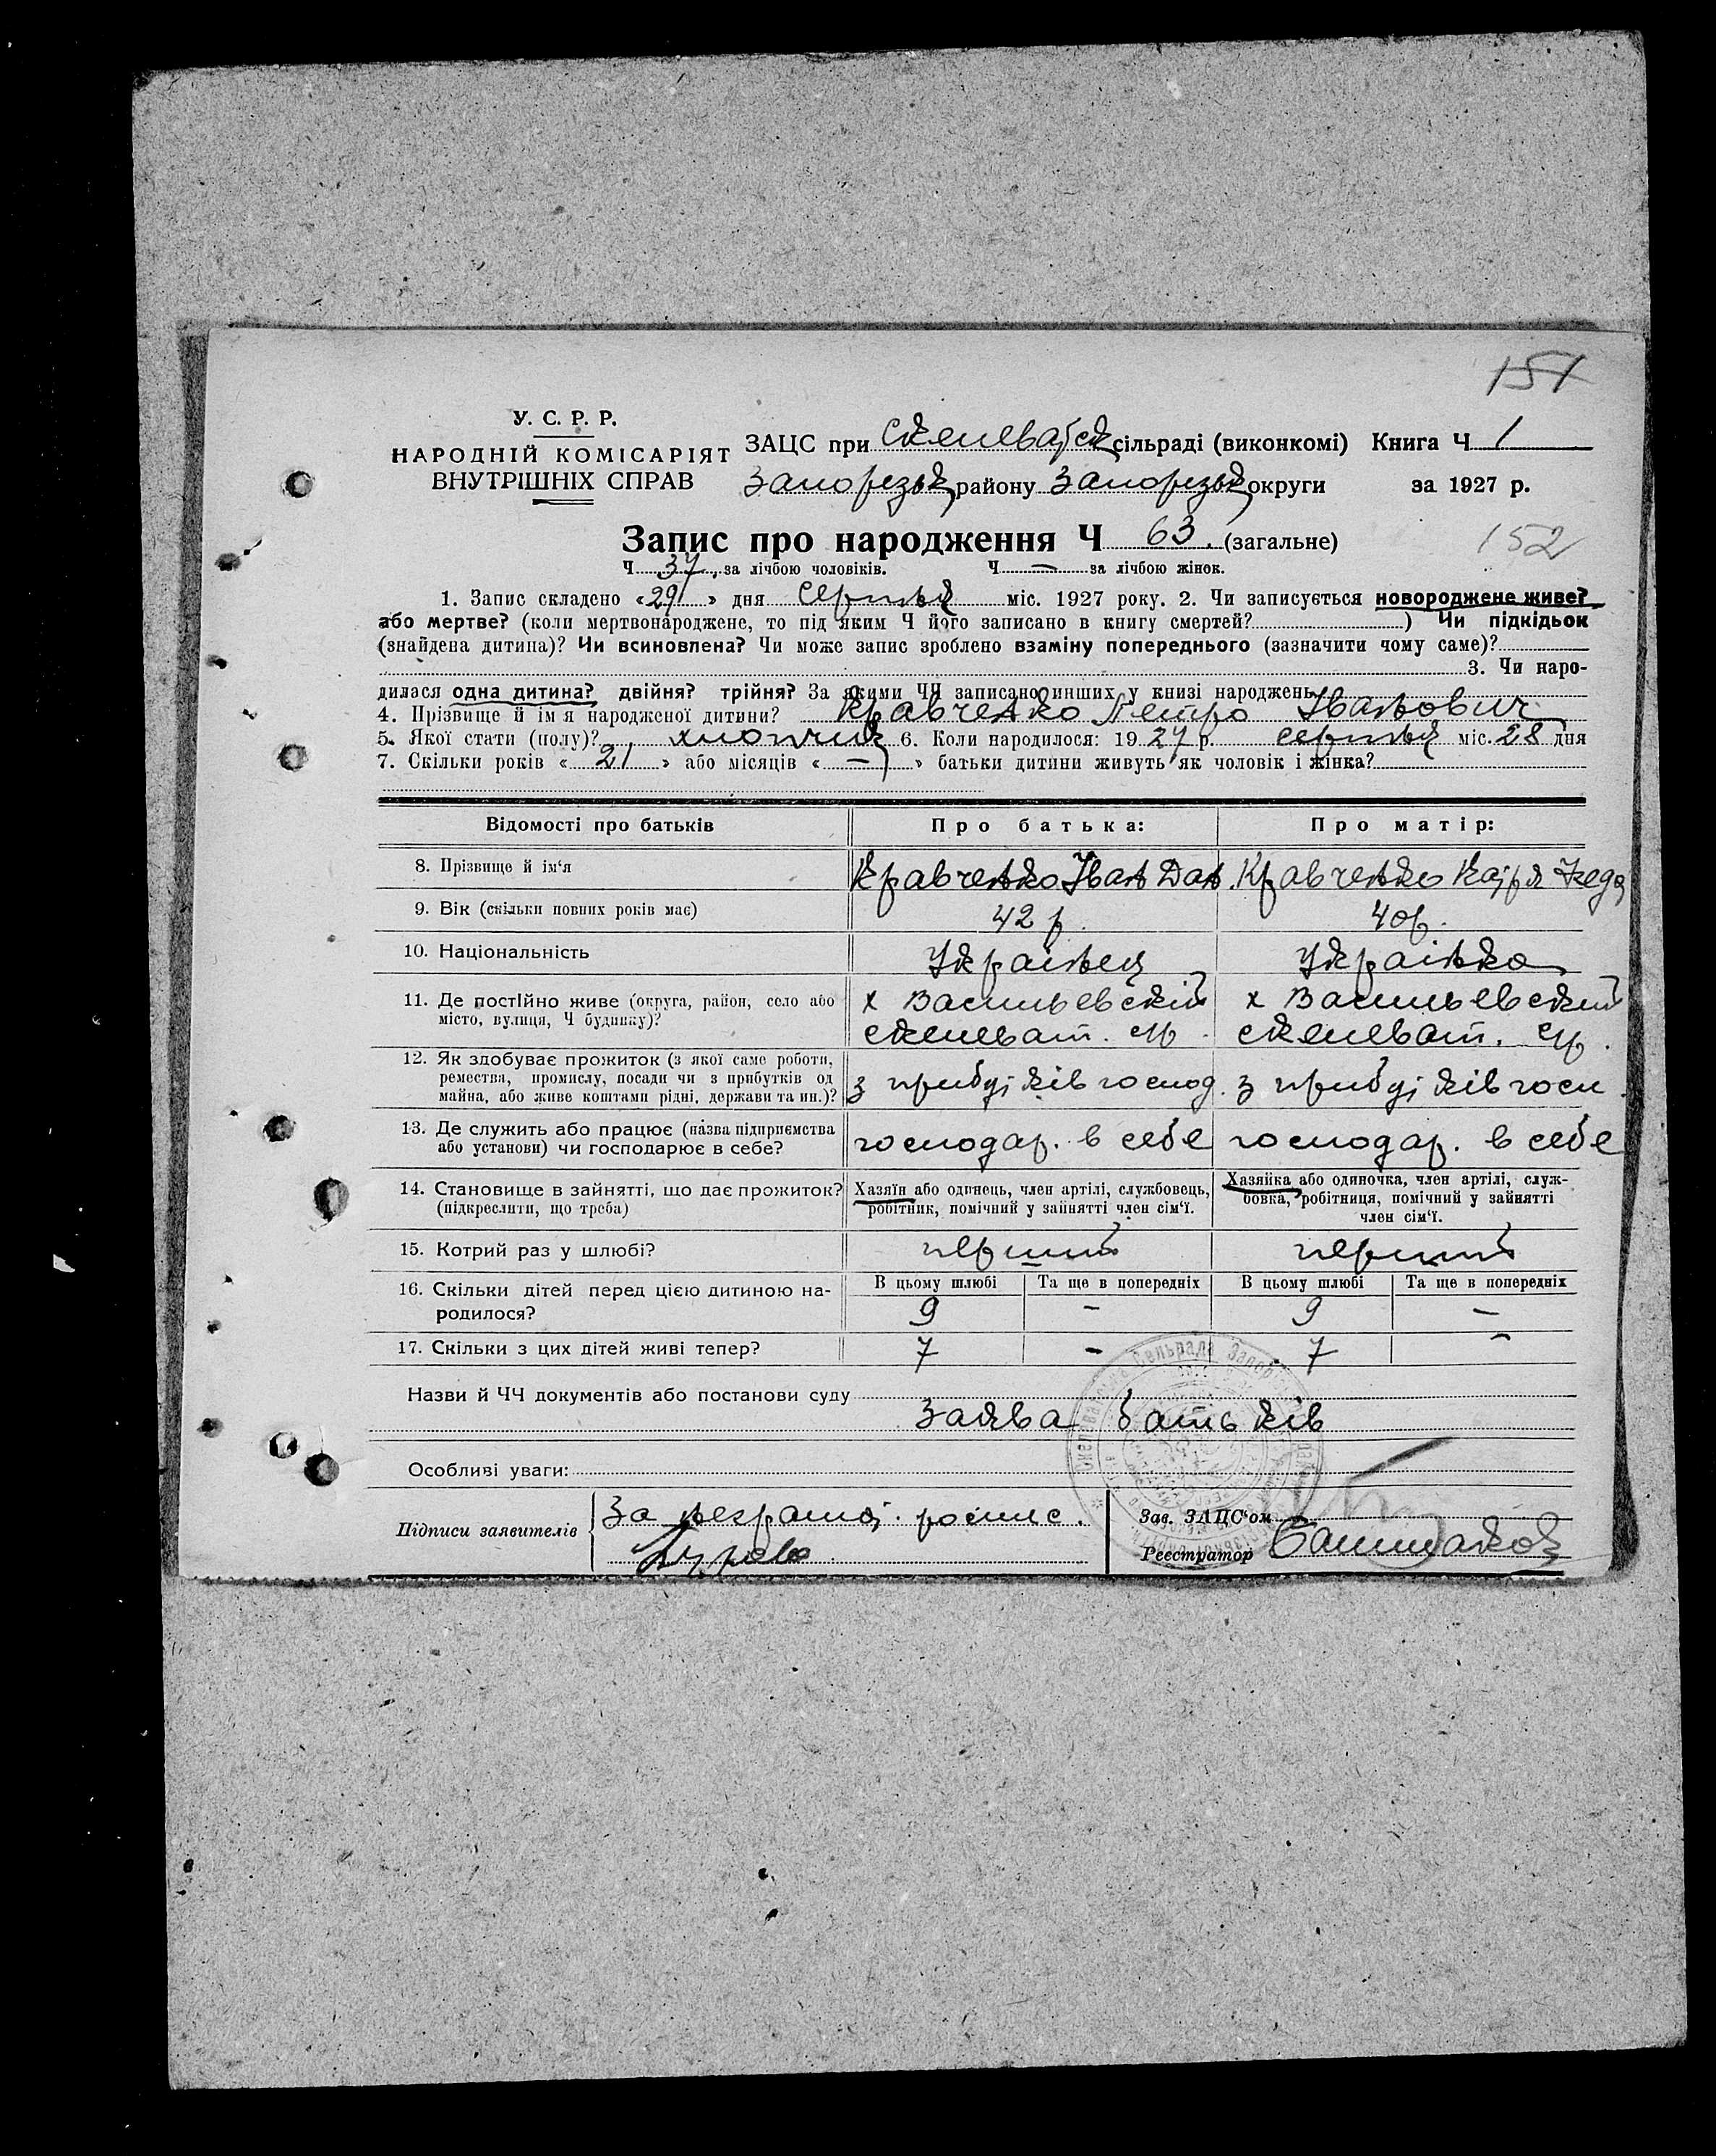 151
У. С. Р. Р.
НАРОДНІЙ КОМІСАРІЯТ
ВНУТРІШНІХ СПРАВ
ЗАЦС при Скелеватськ сільраді (виконкомі) Книга Ч 1
Запорізьк району Запорізьк округи за 1927 р.
Запис про народження Ч 63. (загальне)
152
Ч 37. за лічбою чоловіків. Ч — за лічбою жінок.
1. Запис складено «29» дня серпня міс. 1927 року. 2. Чи записується новороджене живе?
або мертве? (коли мертвонароджене, то під яким Ч його записано в книгу смертей? ) Чи підкідьок
(знайдена дитина)? Чи всиновлена? Чи може запис зроблено взаміну попереднього (зазначити чому саме)?
3. Чи наро-
дилася одна дитина? двійня? трійня? За якими ЧЧ записано инших у книзі народжень
4. Прізвище й ім'я народженої дитини? Кравченко Петро Іванович
5. Якої стати (полу)? хлопчик 6. Коли народилося: 1927 р. серпня міс. 28 дня
7. Скільки років «21» або місяців «—» батьки дитини живуть як чоловік і жінка?
Відомості про батьків Про батька: Про матір:
8. Прізвище й ім'я Кравченко Іван Дан. Кравченко Катря
9. Вік (скільки повних років має) 42 р. 40 р.
10. Національність Українець Українка
11. Де постійно живе (округа, район, село або
місто, вулиця, Ч будинку)?
х Васильевский х Васильевский
Скелеват. ср. Скелеват. ср.
12. Як здобуває прожиток (з якої саме роботи,
ремества, промислу, посади чи з прибутків од
майна, або живе коштами рідні, держави та ин.)?
з прибутків господ. з прибутків госп.
13. Де служить або працює (назва підприємства
або установи) чи господарює в себе?
господар. в себе господар. в себе
14. Становище в зайнятті, що дає прожиток?
(підкреслити, що треба)
Хазяїн або одинець, член артілі, службовець,
робітник, помічний у зайнятті член сім'ї.
Хазяйка або одиночка, член артілі, служ-
бовка, робітниця, помічний у зайнятті
член сім'ї.
15. Котрий раз у шлюбі? перший перший
16. Скільки дітей перед цією дитиною на-
родилося?
В цьому шлюбі Та ще в попередніх В цьому шлюбі Та ще в попередніх
9 – 9 –
17. Скільки з цих дітей живі тепер? 7 – 7 –
Назви й ЧЧ документів або постанови суду
Заява батьків
Особливі уваги:
Підписи заявителів За неграмот. роспис.
Зав. ЗАЦС'ом
Реєстратор